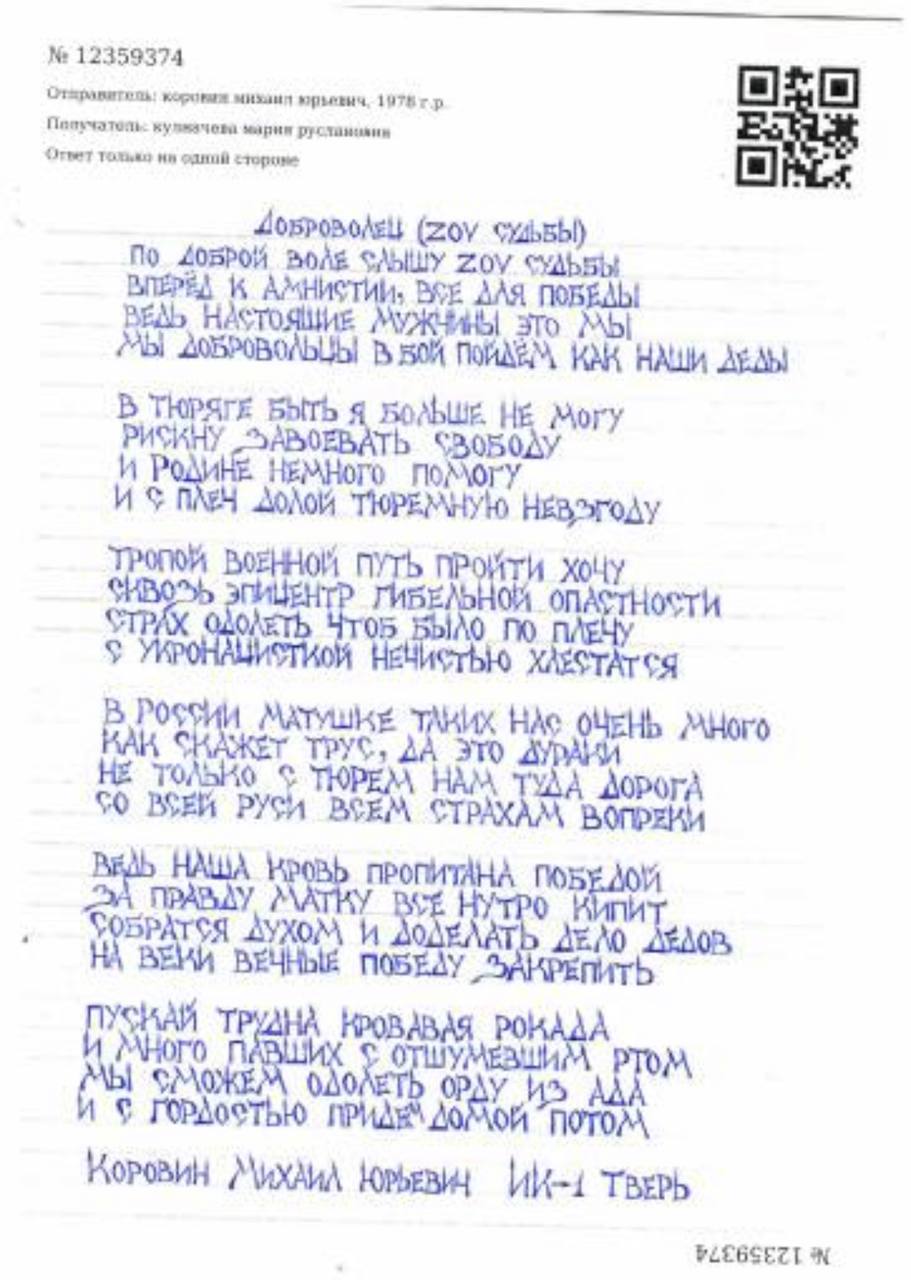 № 12359374
Отправитель: коровин михаил юрьевич, 1978 г.р.
Получатель: кулвачева мария руслановна
Ответ только на одной стороне
ДОБРОВОЛЕЦ (ZOV СУДЬБЫ)
ПО ДОБРОЙ ВОЛЕ СЛЫШУ ZOV СУДЬБЫ
ВПЕРЁД К АМНИСТИИ, ВСЕ ДЛЯ ПОБЕДЫ
ВЕДЬ НАСТОЯЩИЕ МУЖЧИНЫ ЭТО МЫ
МЫ ДОБРОВОЛЬЦЫ В БОЙ ПОЙДЁМ КАК НАШИ ДЕДЫ
В ТЮРЯГЕ БЫТЬ Я БОЛЬШЕ НЕ МОГУ
РИСКНУ ЗАВОЕВАТЬ СВОБОДУ
И РОДИНЕ НЕМНОГО ПОМОГУ
И С ПЛЕЧ ДОЛОЙ ТЮРЕМНУЮ НЕВЗГОДУ
ТРОПОЙ ВОЕННОЙ ПУТЬ ПРОЙТИ ХОЧУ
СКВОЗЬ ЭПИЦЕНТР ГИБЕЛЬНОЙ ОПАСТНОСТИ
СТРАХ ОДОЛЕТЬ ЧТОБ БЫЛО ПО ПЛЕЧУ
С УКРОНАЦИСТКОЙ НЕЧИСТЬЮ ХЛЕСТАТСЯ
В РОССИИ МАТУШКЕ ТАКИХ НАС ОЧЕНЬ МНОГО
КАК СКАЖЕТ ТРУС, ДА ЭТО ДУРАКИ
НЕ ТОЛЬКО С ТЮРЕМ НАМ ТУДА ДОРОГА
СО ВСЕЙ РУСИ ВСЕМ СТРАХАМ ВОПРЕКИ
ВЕДЬ НАША КРОВЬ ПРОПИТАНА ПОБЕДОЙ
ЗА ПРАВДУ МАТКУ ВСЕ НУТРО КИПИТ
СОБРАТСЯ ДУХОМ И ДОДЕЛАТЬ ДЕЛО ДЕДОВ
НА ВЕКИ ВЕЧНЫЕ ПОБЕДУ ЗАКРЕПИТЬ
ПУСКАЙ ТРУДНА КРОВАВАЯ РОКАДА
И МНОГО ПАВШИХ С ОТШУМЕВШИМ РТОМ
МЫ СМОЖЕМ ОДОЛЕТЬ ОРДУ ИЗ АДА
И С ГОРДОСТЬЮ ПРИДЕМ ДОМОЙ ПОТОМ
КОРОВИН МИХАИЛ ЮРЬЕВИЧ ИК-1 ТВЕРЬ
№ 12359374